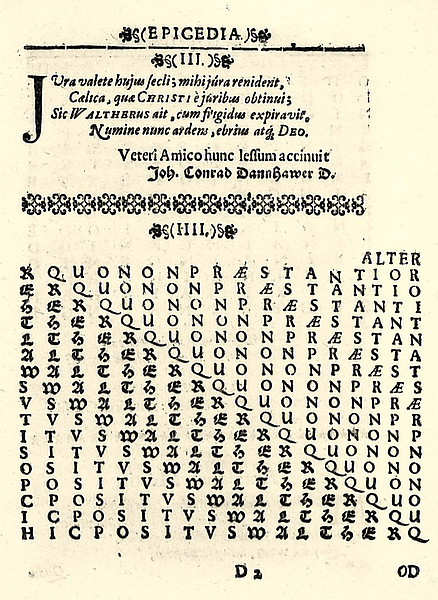 (EPICEDIA.)
(III.)
JUra valete hujus secli; mihi jura renident,
Cælica, quæ CHRISTI è juribus obtinui;
Sic WALTHERUS ait, cum frigidus expiravit,
Numine nunc ardens, ebrius atq; DEO.
Veteri Amico hunc lessum accinuit
Joh. Conrad Dannhawer D.
(IIII.)
ALTER
R Q U O N O N P R Æ S T A N T I O R
E R Q U O N O N P R Æ S T A N T I O
H E R Q U O N O N P R Æ S T A N T I
T H E R Q U O N O N P R Æ S T A N T
L T H E R Q U O N O N P R Æ S T A N
A L T H E R Q U O N O N P R Æ S T A
W A L T H E R Q U O N O N P R Æ S T
S W A L T H E R Q U O N O N P R Æ S
V S W A L T H E R Q U O N O N P R Æ
T V S W A L T H E R Q U O N O N P R
I T V S W A L T H E R Q U O N O N P
S I T V S W A L T H E R Q U O N O N
O S I T V S W A L T H E R Q U O N O
P O S I T V S W A L T H E R Q U O N
C P O S I T V S W A L T H E R Q U O
I C P O S I T V S W A L T H E R Q U
H I C P O S I T V S W A L T H E R Q
D 2 OD